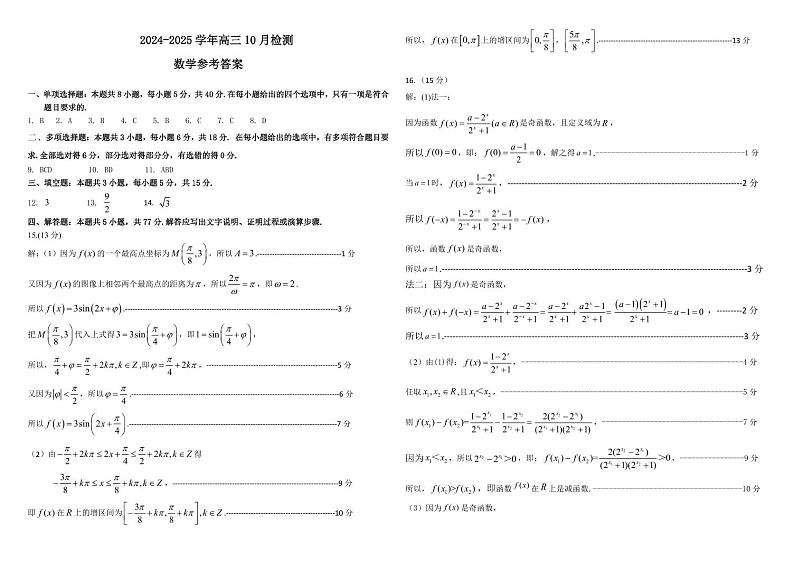 2024-2025 学年高三 10 月检测
数学参考答案
一、单项选择题：本题共 8 小题，每小题 5 分，共 40 分.在每小题给出的四个选项中，只有一项是符合
题目要求的.
1. B 2. A 3. B 4. C 5. B 6. C 7. C 8. D
二、多项选择题：本题共 3 小题，每小题 6 分，共 18 分. 在每小题给出的选项中，有多项符合题目要
求.全部选对得 6 分，部分选对得部分分，有选错的得 0 分.
9. BCD 10. BD 11. ABD
三、填空题：本题共 3 小题，每小题 5 分，共 15 分.
12. 3 13. 9/2 14. √3
四、解答题：本题共 5 小题，共 77 分.解答应写出文字说明、证明过程或演算步骤.
15.(13 分)
解：（1）因为 f(x) 的一个最高点坐标为 M(π/8,3)，所以 A=3.----------1 分
又因为 f(x) 的图像上相邻两个最高点的距离为 π，所以 2π/ω=π，即 ω=2.
所以 f(x)=3sin(2x+φ).----------3 分
把 M(π/8,3) 代入上式得 3=3sin(π/4+φ)，即 1=sin(π/4+φ)，
所以，π/4+φ=π/2+2kπ,k∈Z,即 φ=π/4+2kπ，----------5 分
又因为 |φ|<π/2，所以 φ=π/4.----------6 分
所以 f(x)=3sin(2x+π/4).----------7 分
（2）由 -π/2+2kπ≤2x+π/4≤π/2+2kπ,k∈Z 得
-3π/8+kπ≤x≤π/8+kπ,k∈Z，----------9 分
即 f(x) 在 R 上的增区间为 [-3π/8+kπ,π/8+kπ],k∈Z.----------10 分
所以，f(x) 在 [0,π] 上的增区间为 [0,π/8]，[5π/8,π].----------13 分
16.（15 分）
解：(1)法一：
因为函数 f(x)=(a-2^x)/(2^x+1)(a∈R) 是奇函数，且定义域为 R，
所以 f(0)=0，即：f(0)=(a-1)/2=0，解之得 a=1.----------1 分
当 a=1 时，f(x)=(1-2^x)/(2^x+1)，----------2 分
所以 f(-x)=(1-2^-x)/(2^-x+1)=(2^x-1)/(2^x+1)=-f(x)，
所以，函数 f(x) 是奇函数，
所以 a=1.----------3 分
法二：因为 f(x) 是奇函数，
所以 f(x)+f(-x)=(a-2^x)/(2^x+1)+(a-2^-x)/(2^-x+1)=(a-2^x)/(2^x+1)+(a2^x-1)/(2^x+1)=(a-1)(2^x+1)/(2^x+1)=a-1=0，---------2 分
所以 a=1.----------3 分
（2）由(1)得：f(x)=(1-2^x)/(2^x+1)，----------4 分
任取 x₁,x₂∈R,且 x₁<x₂，----------5 分
则 f(x₁)-f(x₂)=(1-2^x₁)/(2^x₁+1)-(1-2^x₂)/(2^x₂+1)=2(2^x₂-2^x₁)/((2^x₁+1)(2^x₂+1))，----------7 分
因为 x₁<x₂，所以 2^x₂-2^x₁>0，即：f(x₁)-f(x₂)=2(2^x₂-2^x₁)/((2^x₁+1)(2^x₂+1))>0，----------9 分
所以，f(x₁)>f(x₂)，即函数 f(x) 在 R 上是减函数.----------10 分
（3）因为 f(x) 是奇函数，